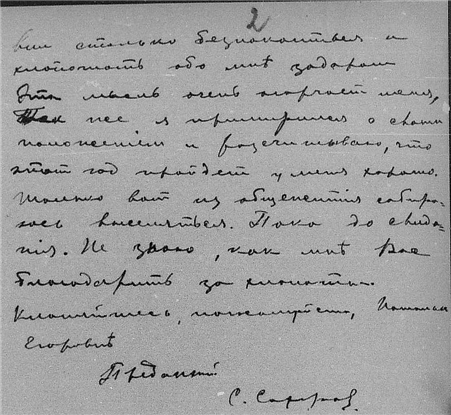 2
вии столько безпокоиться и
хлопотать обо мнѣ задаром
Эта мысль очень огорчает меня,
Так же я примирился с своим
положеніем и разсчитываю, что
этот год пройдет у меня хорошо.
Только вот из общежитія собира-
юсь выселяться. Пока до свида-
нія. Не знаю, как мнѣ Вас
благодарить за хлопоты.
Кланяйтесь, пожалуйста,
Егоровнѣ
Преданный
С.